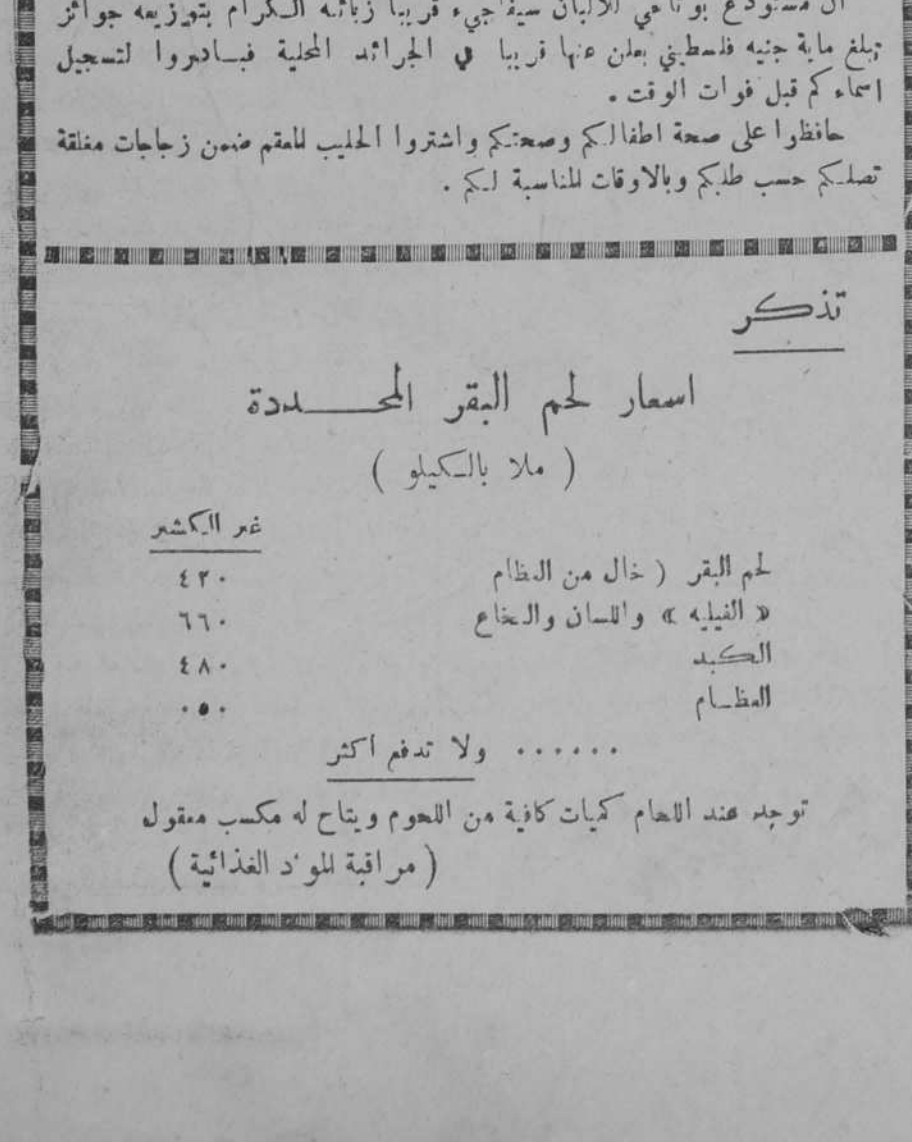 ان مستودع للالبان سيفاجيء قريبا زبائنه الكرام بتوزيعه جوائز
تبلغ ماية جنيه فلسطيني يعلن عنها قريبا في الجرائد المحلية فبادروا لتسجيل
اسماءكم قبل فوات الوقت .
حافظوا على صحة اطفالكم وصحتكم واشتروا الحليب المعقم ضمن زجاجات مغلقة
تصلكم حسب طلبكم وبالاوقات المناسبة لكم .
تذكر
اسعار لحم البقر المحـــددة
( ملا بالكيلو )
غير الكشير
لحم البقر ( خال من العظام ٤٢٠
« الفيليه » واللسان والنخاع ٦٦٠
الكبد ٤٨٠
العظـام ٠٥٠
...... ولا تدفع اكثر
توجد عند اللحام كميات كافية من اللحوم ويتاح له مكسب معقول
( مراقبة المواد الغذائية )